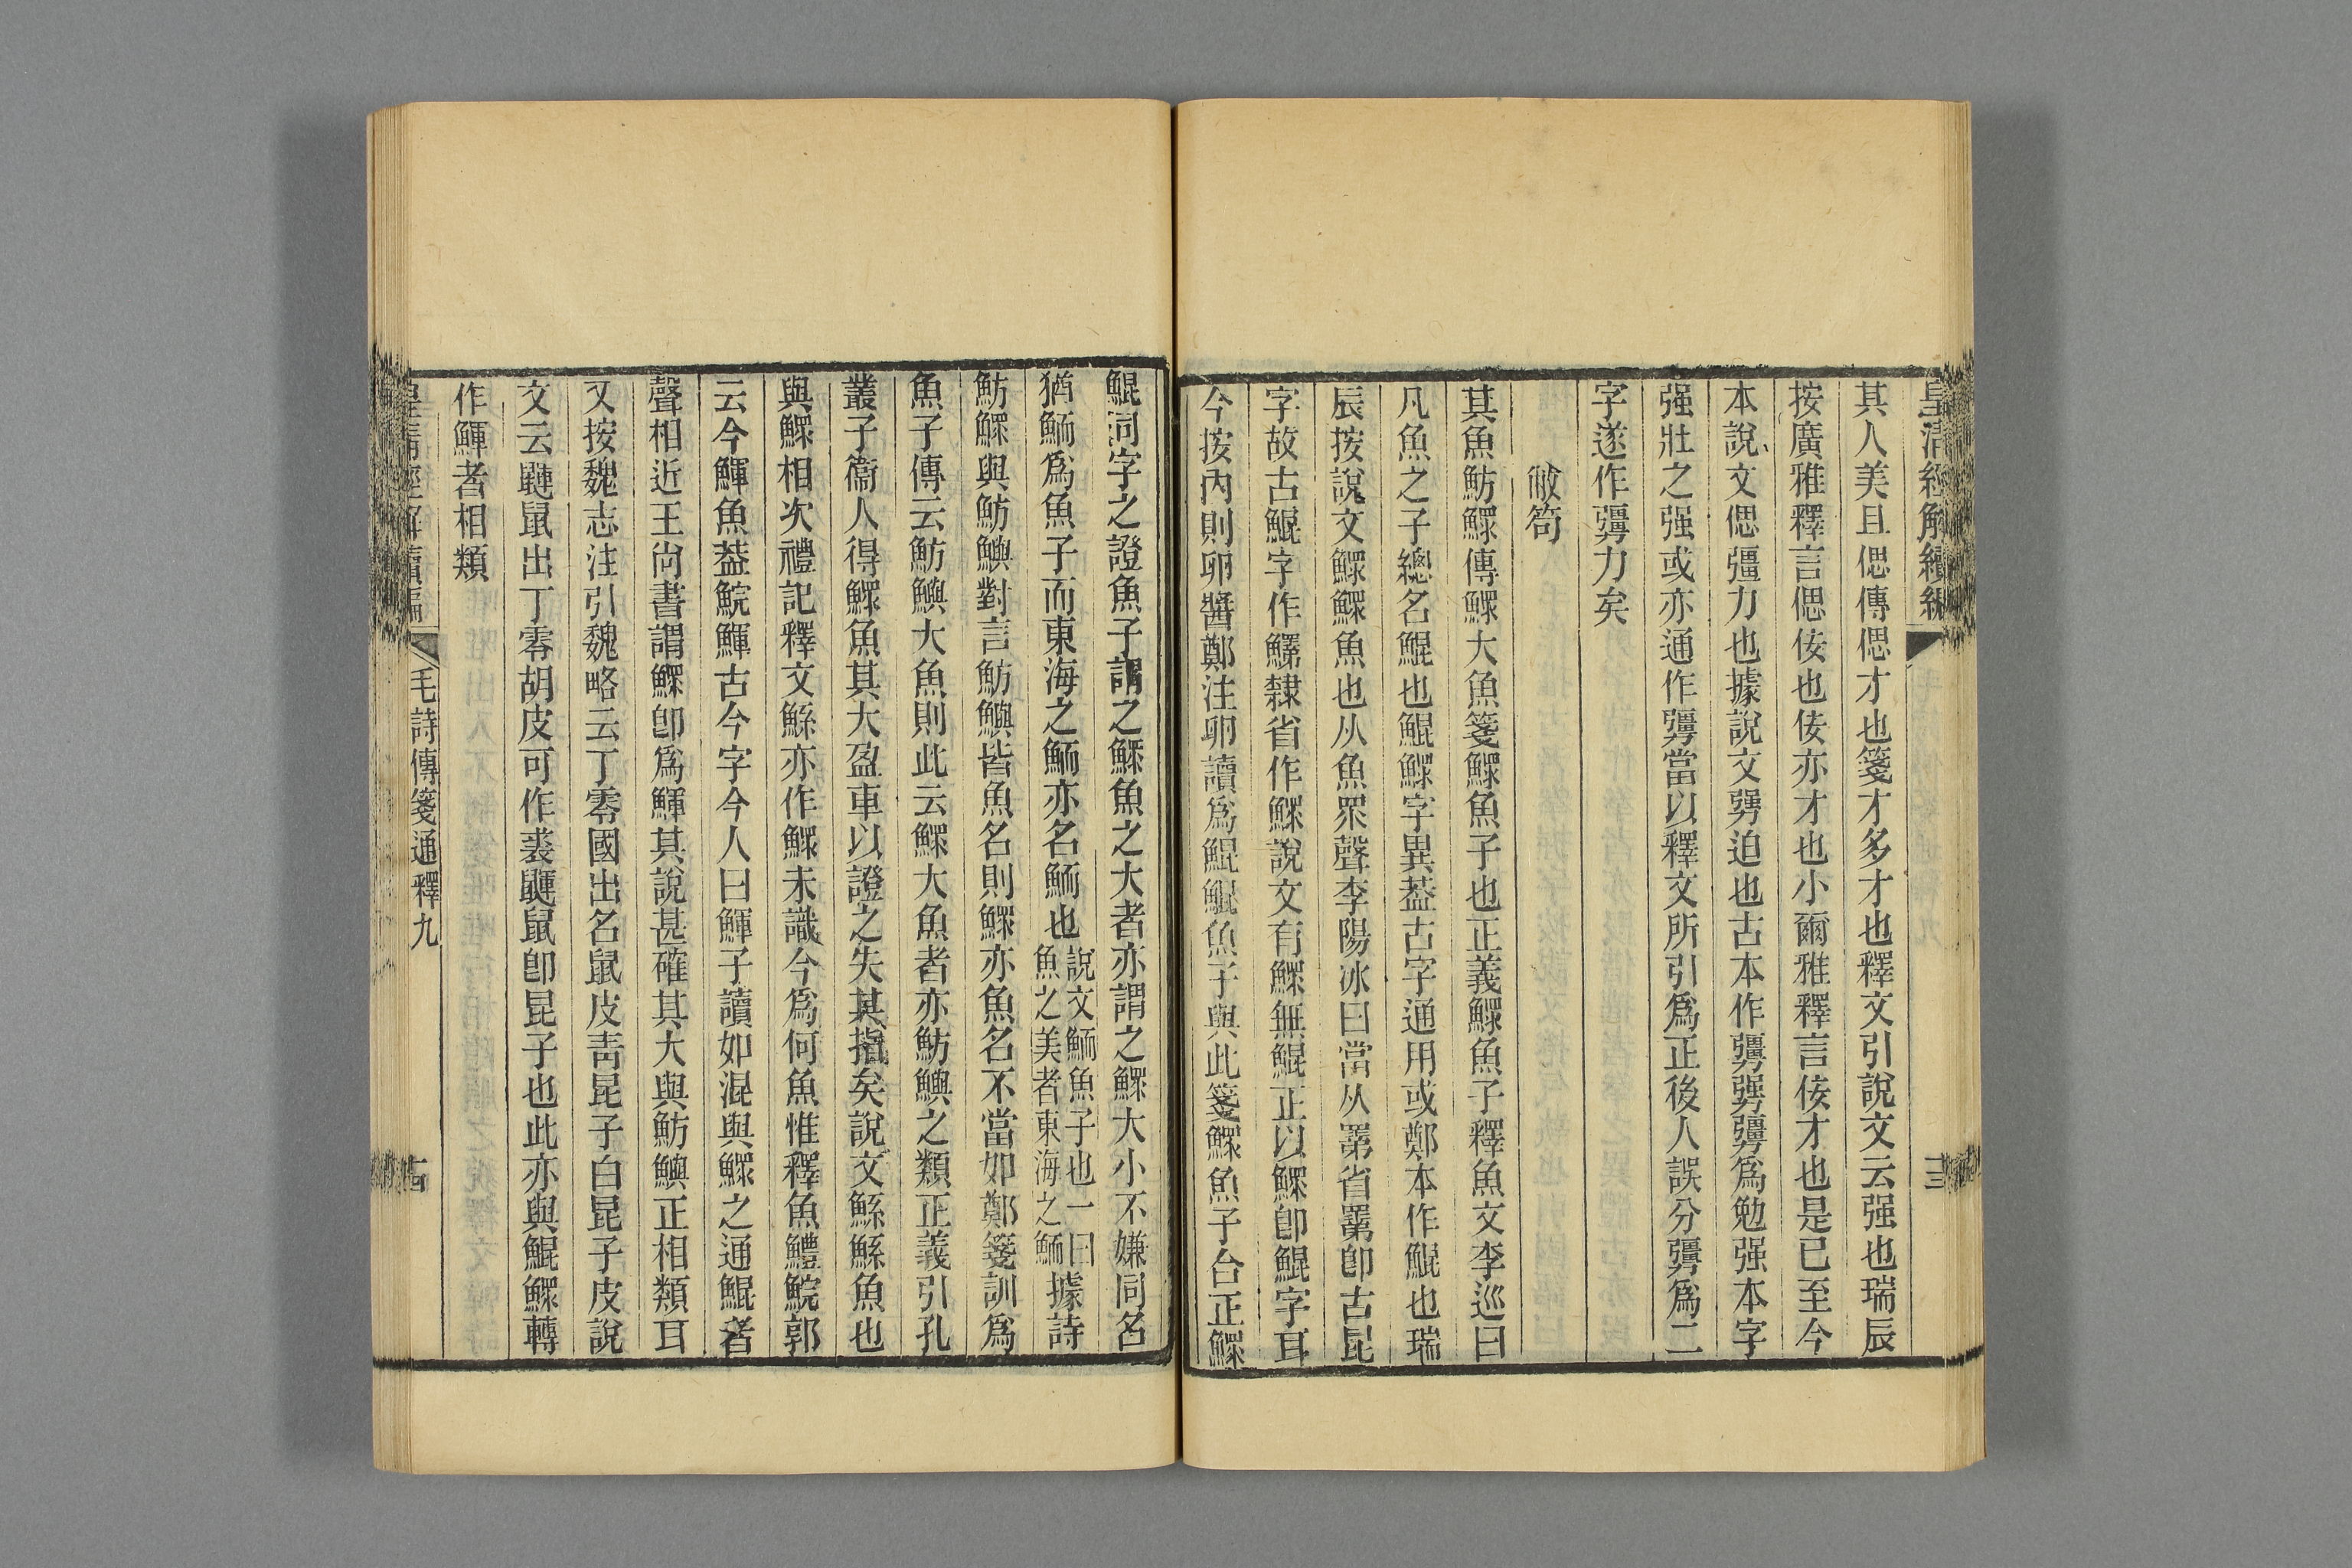 皇清經解續編
十三
其人美且偲傳偲才也箋才多才也釋文引說文云强也瑞辰
按廣雅釋言偲佞也佞亦才也小爾雅釋言佞才也是已至今
本說文偲彊力也據說文勥迫也古本作㔝勥㔝爲勉强本字
强壯之强或亦通作㔝當以釋文所引爲正後人誤分㔝爲二
字遂作彊力矣
敝笱
其魚魴鰥傳鰥大魚箋鰥魚子也正義鰥魚子釋魚文李巡曰
凡魚之子總名鯤也鯤鰥字異葢古字通用或鄭本作鯤也瑞
辰按說文鰥鰥魚也从魚眔聲李陽冰曰當从𥊽省𥊽卽古昆
字故古鯤字作鰥隸省作鰥說文有鰥無鯤正以鰥卽鯤字耳
今按內則卵醬鄭注卵讀爲鯤鯤魚子與此箋鰥魚子合正鰥
鯤同字之證魚子謂之鰥魚之大者亦謂之鰥大小不嫌同名
猶鮞爲魚子而東海之鮞亦名鮞也說文鮞魚子也一曰魚之美者東海之鮞據詩
魴鰥與魴鱮對言魴鱮皆魚名則鰥亦魚名不當如鄭箋訓爲
魚子傳云魴鱮大魚則此云鰥大魚者亦魴鱮之類正義引孔
叢子衞人得鰥魚其大盈車以證之失其指矣說文鯀鯀魚也
與鰥相次禮記釋文鯀亦作鰥未識今爲何魚惟釋魚鱧鯇郭
云今鯶魚葢鯇鯶古今字今人曰鯶子讀如混與鰥之通鯤者
聲相近王尙書謂鰥卽爲鯶其說甚確其大與魴鱮正相類耳
又按魏志注引魏略云丁零國出名鼠皮靑昆子白昆子皮說
文云鼲鼠出丁零胡皮可作裘鼲鼠卽昆子也此亦與鯤鰥轉
作鯶者相類
皇清經解續編
毛詩傳箋通釋九
十四